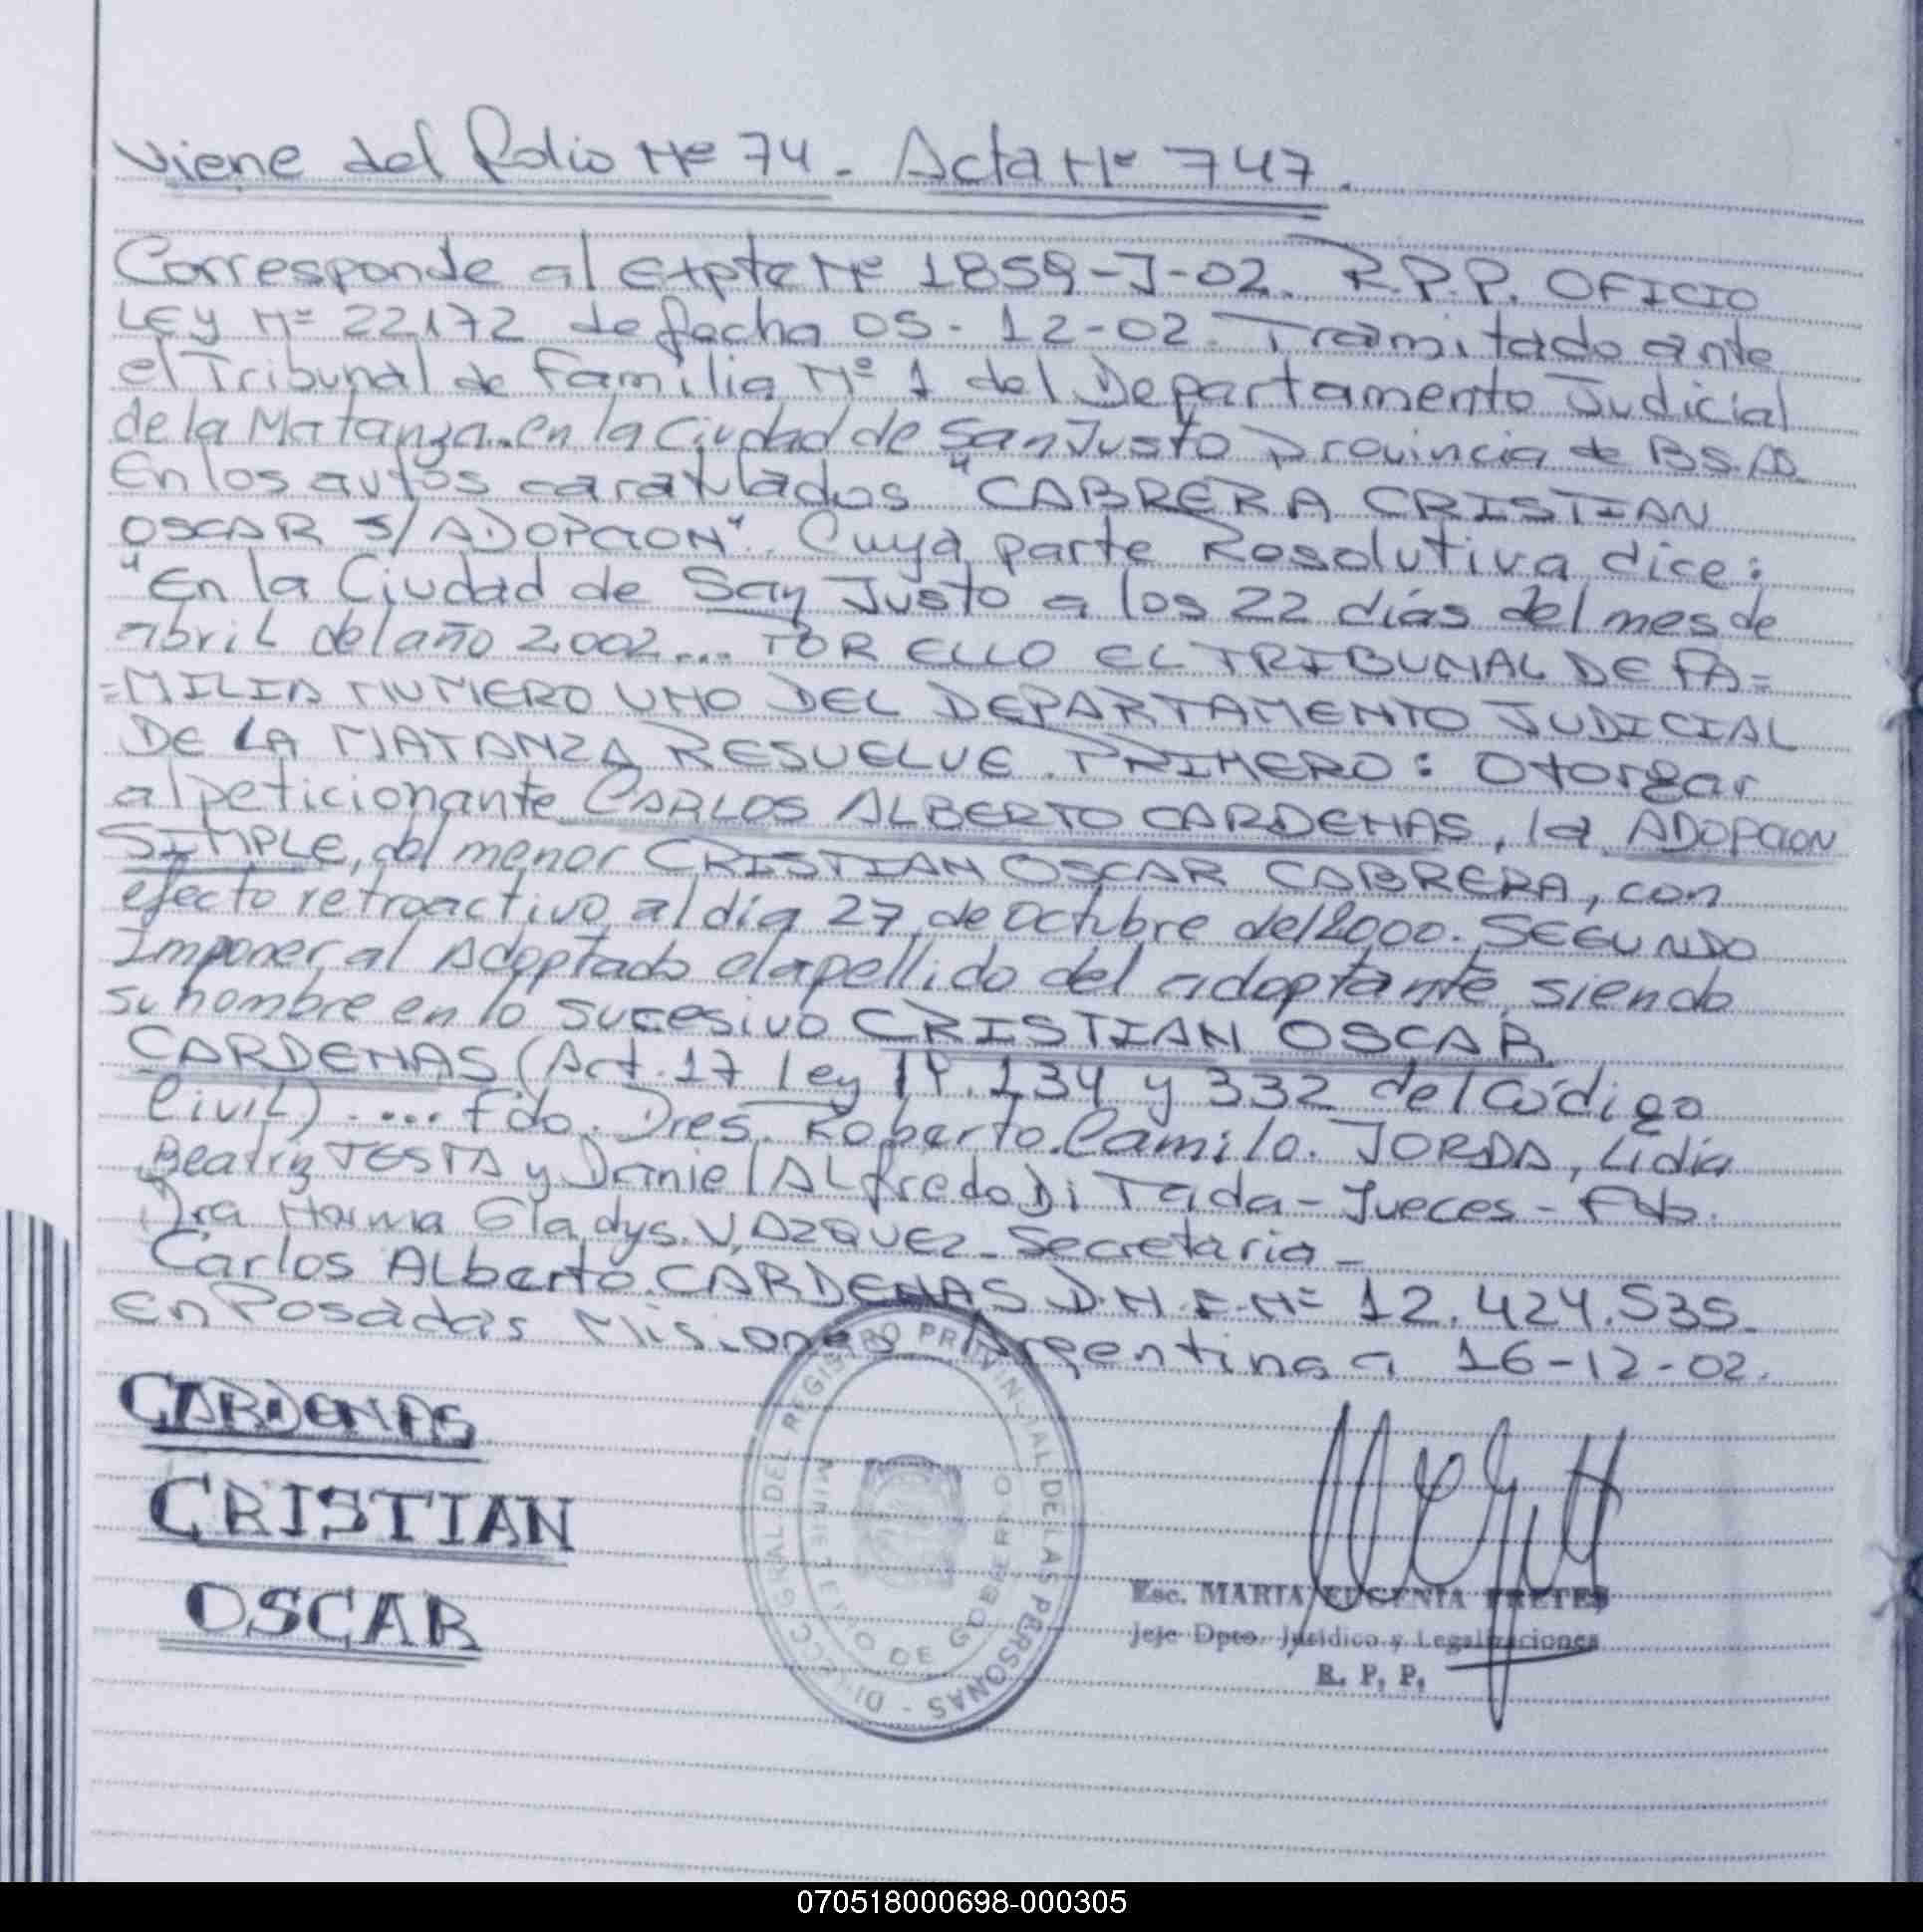 Viene del folio Nº 74. Acta Nº 747.
Corresponde al Expte Nº 1859-J-02. R.P.P. OFICIO
LEY Nº 22172 de fecha 05-12-02. Tramitado ante
el Tribunal de Familia Nº 1 del Departamento Judicial
de la Matanza. en la Ciudad de San Justo Provincia de BS.AS.
En los autos caratulados "CABRERA CRISTIAN
OSCAR S/ADOPCION". Cuya parte Resolutiva dice:
"En la Ciudad de San Justo a los 22 días del mes de
abril del año 2.002... POR ELLO EL TRIBUNAL DE FA=
=MILIA NUMERO UNO DEL DEPARTAMENTO JUDICIAL
DE LA MATANZA RESUELVE. PRIMERO: Otorgar
al peticionante CARLOS ALBERTO CARDENAS, la ADOPCION
SIMPLE, del menor CRISTIAN OSCAR CABRERA, con
efecto retroactivo al dia 27 de Octubre del 2000. SEGUNDO
Imponer al Adoptado el apellido del adoptante, siendo
su nombre en lo sucesivo CRISTIAN OSCAR
CARDENAS (Art. 17 Ley 19.134 y 332 del Código
Civil) .... Fdo. Dres. Roberto. Camilo. JORDA, Lidia
Beatriz TESTA y Daniel ALfredo Di Tada - Jueces - Fdo.
Dra Norma Gladys. VAZQUEZ - Secretaria -
Carlos ALberto. CARDENAS D.N.I. Nº 12.424.535.
En Posadas Misiones Argentina a 16-12-02.
CARDENAS
CRISTIAN
OSCAR
GRAL DEL REGISTRO PROVINCIAL DE LAS PERSONAS -
MINISTERIO DE GOBIERNO
Esc. MARIA EUGENIA FRETES
Jefe Dpto. Jurídico y Legalizaciones
R. P. P.
070518000698-000305